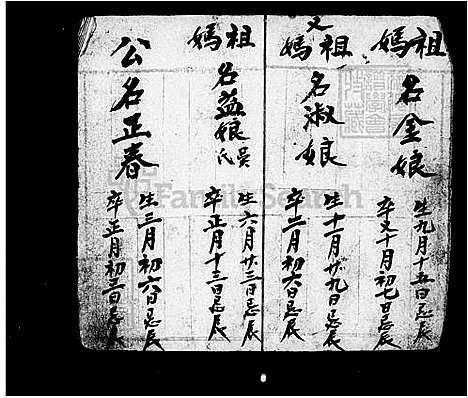 祖媽
名金娘
生九月十五日忌辰
卒又十月初七日忌辰
又祖媽
名淑娘
生十一月廿九日忌辰
卒二月初六日忌辰
祖媽
名益娘
吳氏
生六月廿三日忌辰
卒正月十三日忌辰
公名正春
生三月初六日忌辰
卒正月初三日忌辰
FamilySearch